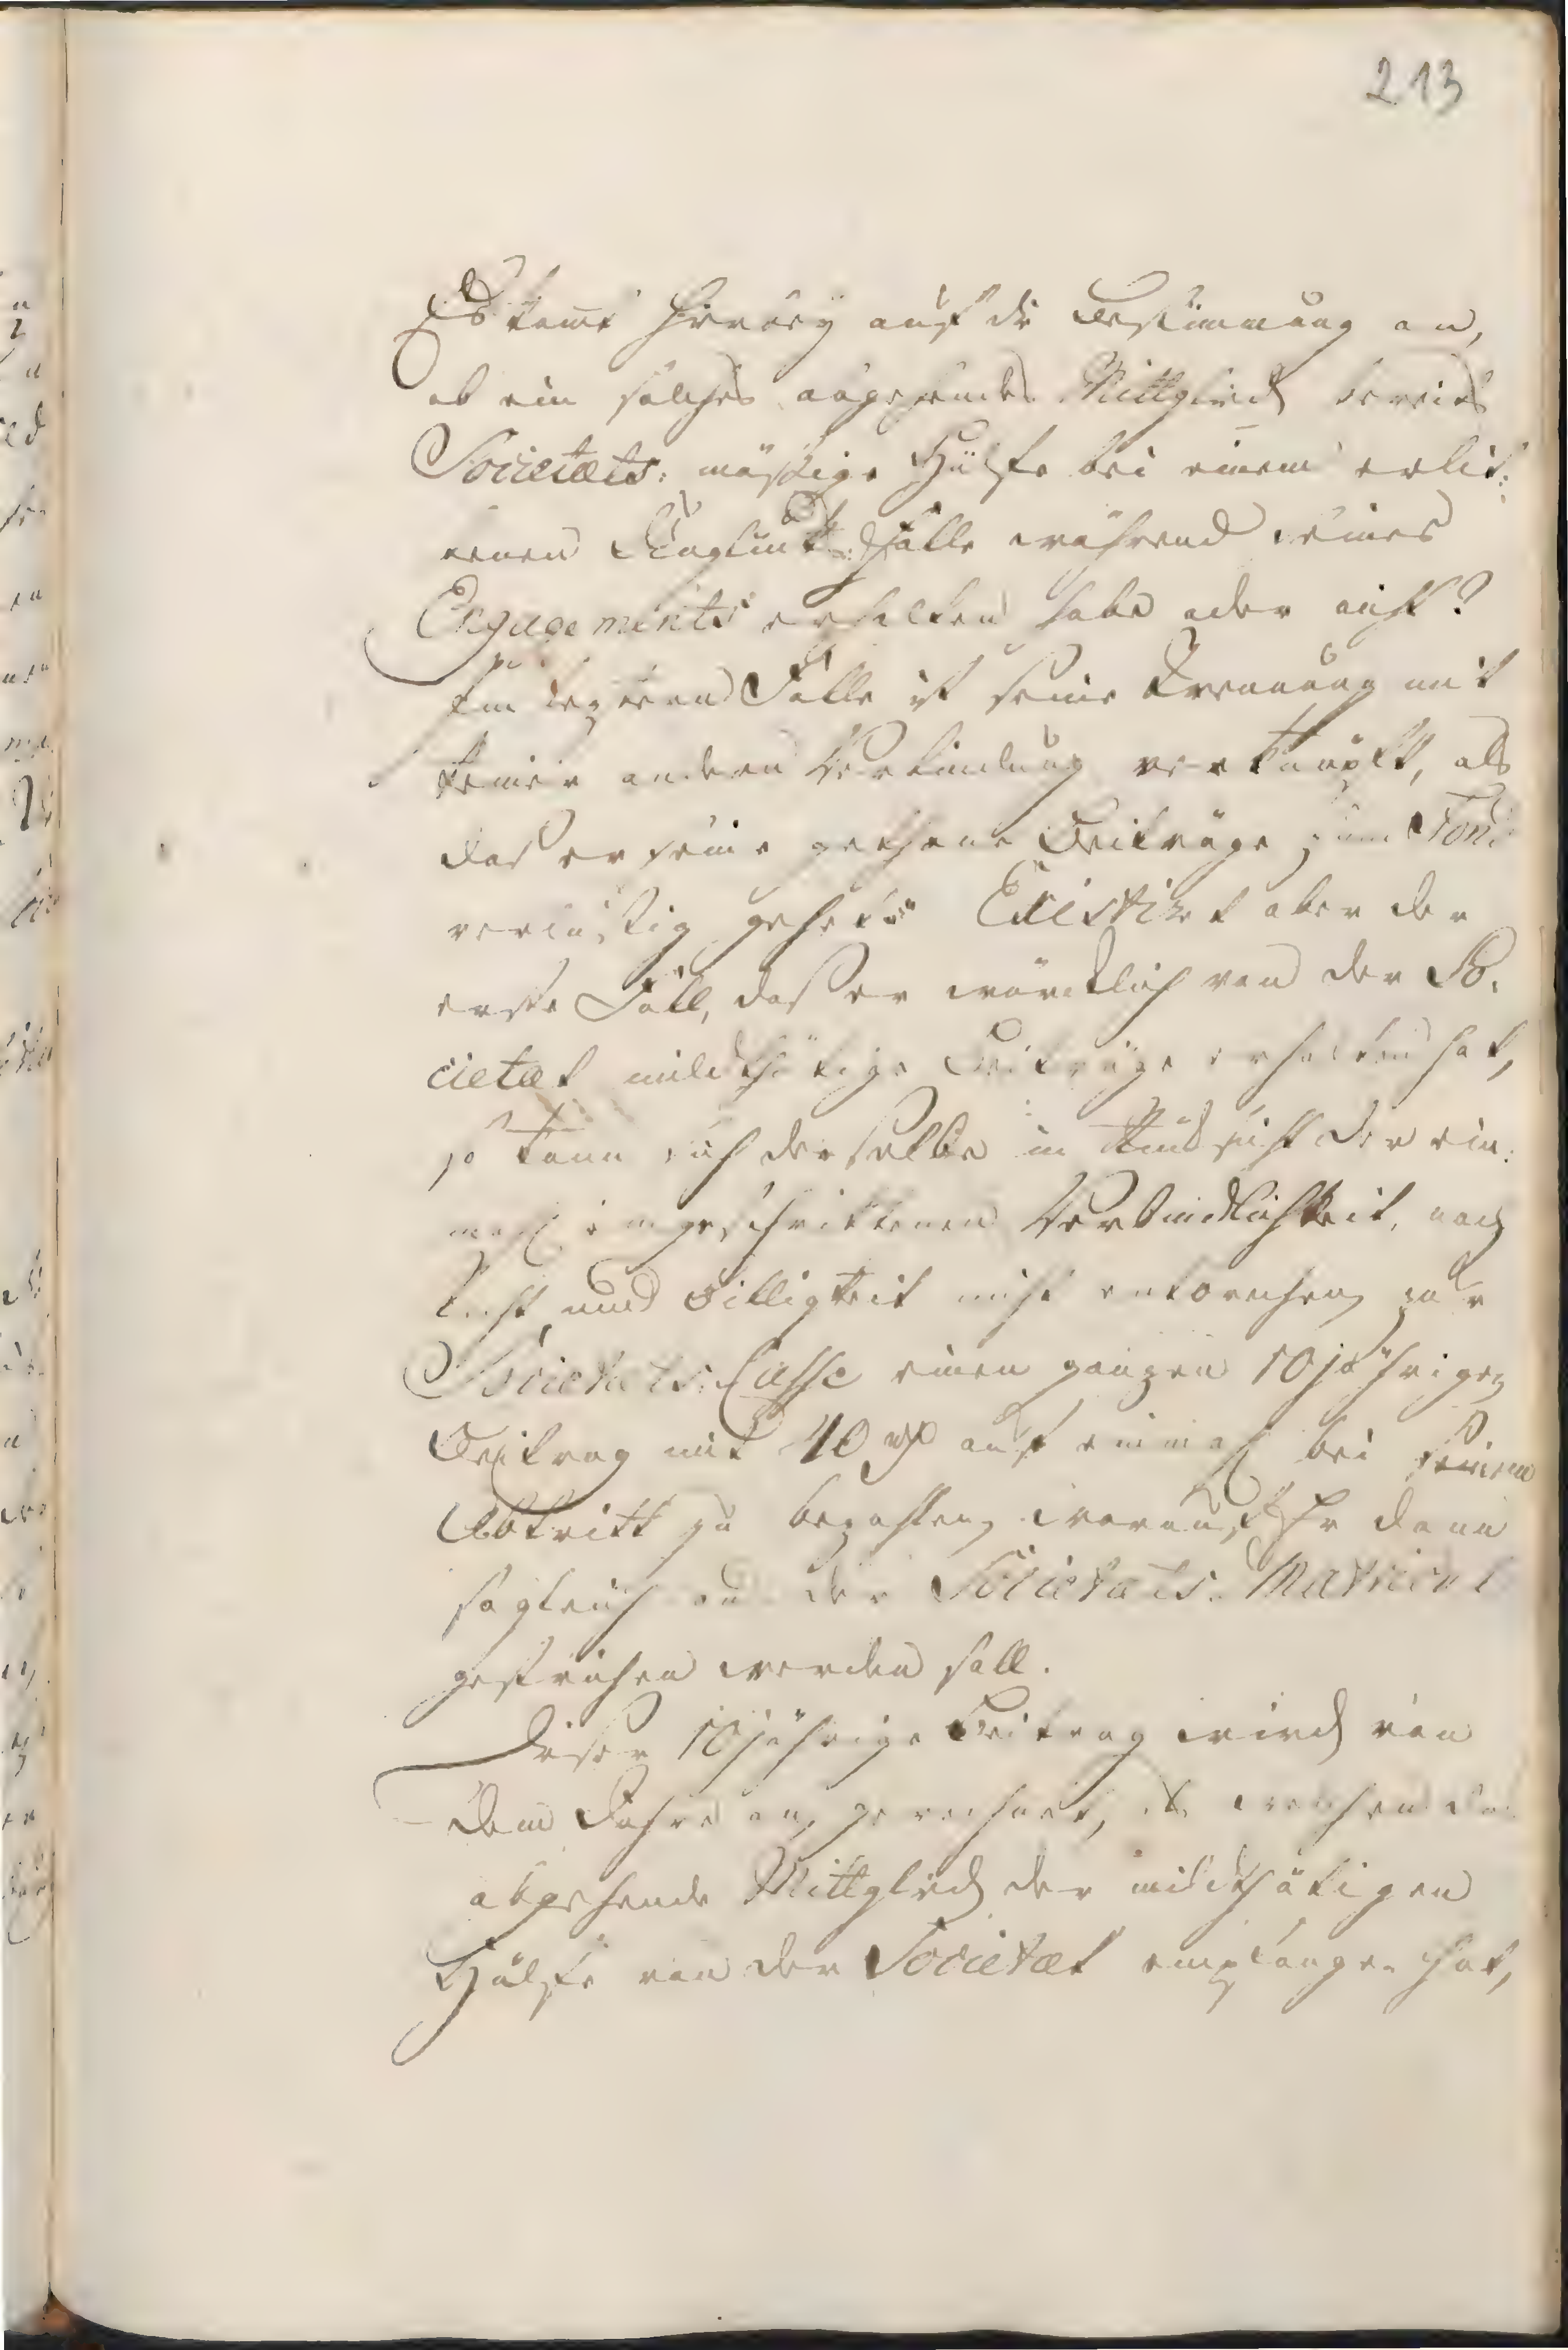 213
Es komt hierbey auf die Bestimmung an,
ob ein solches abgehendes Mittglied bereits
Societæts: mäßige Hülfe bei einem erlit:
tenen Unglücks: Falle während seines
Engagements erhalten habe oder nicht?
Im lezteren Falle ist seine Trennung mit
keiner andern Verbindung verknüpft, als
das er seine gethane Beiträge zum Fond
verlustig gehet. Existiret aber der
erste Fall, daß er würcklich von der So:
cietæt mildthätige Beiträge erhalten hat,
so kann sich derselbe in Rücksicht der ein:
mahl eingeschrittenen Verbindlichkeit, nach
Recht und Billigkeit nicht entbrechen zur
Societæts: Casse einen ganzen 10jährigen
Beitrag mit 40 rt auf einmahl bei seinem
Abtritt zu bezahlen, worauf Er dann
sogleich aus der Societæts: Matricul
gestrichen werden soll.
Dieser 10jährige Beitrag wird von
dem Jahre an, gerechnet, in welchem das
abgehende Mittglied der mildthätigen
Hülfe von der Societæt empfangen hat,